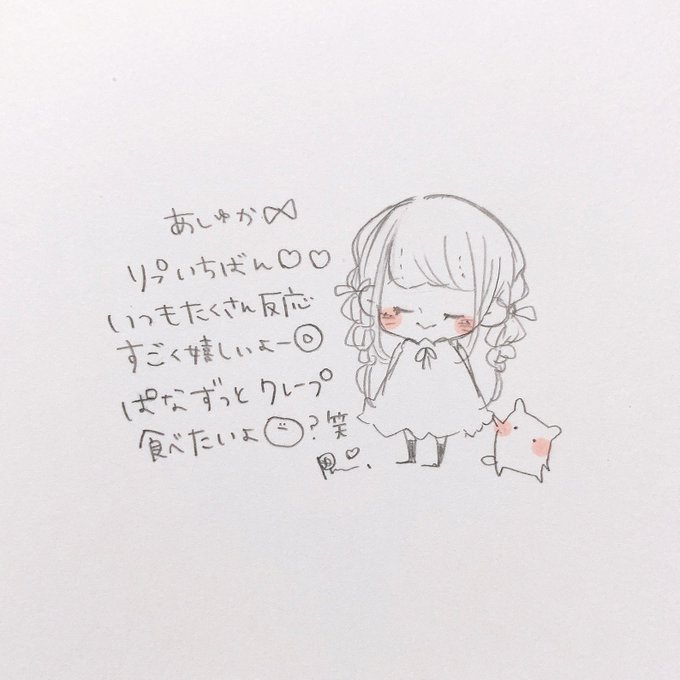 あしゅか
リプいちばん♡♡
いつもたくさん反応
すごく嬉しいよー◎
ぱなずっとクレープ
食べたいよ?笑